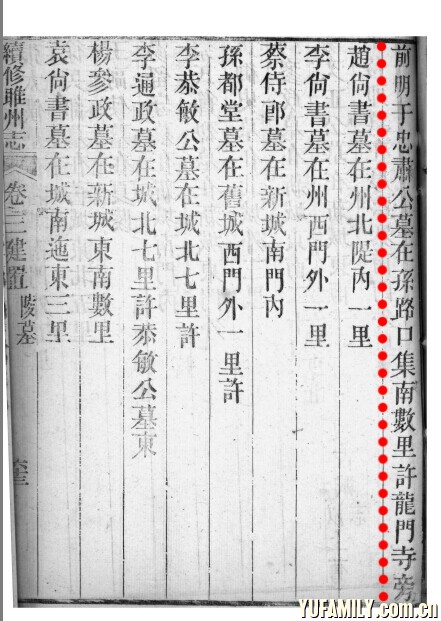 前明于忠肅公墓在孫路口集南數里許龍門寺旁
趙尙書墓在州北隄內一里
李尙書墓在州西門外一里
蔡侍郎墓在新城南門內
孫都堂墓在舊城西門外一里許
李恭敏公墓在城北七里許
李通政墓在城北七里許恭敏公墓東
楊參政墓在新城東南數里
袁尙書墓在城南迤東三里
續修睢州志
卷二建置
陵墓
YUFAMILY.com.cn